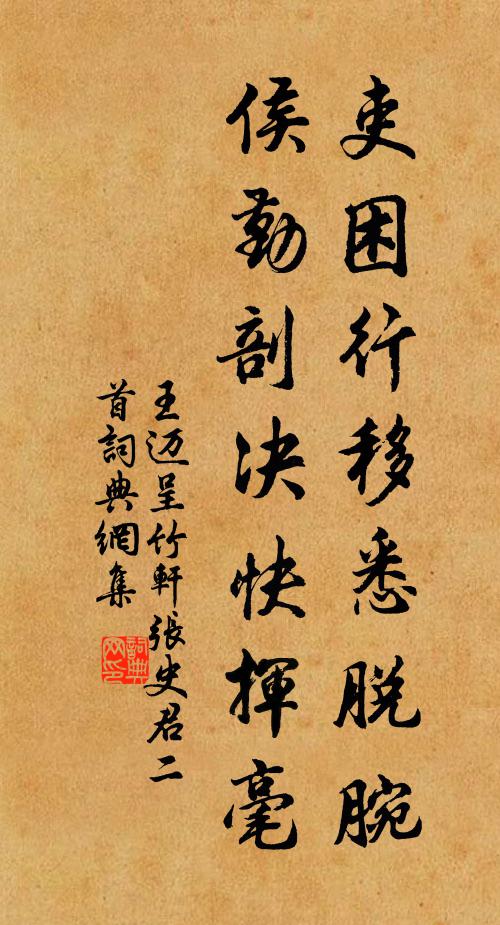 吏困行移悉脱腕
侯勤剖决快揮毫
王迈呈竹軒張史君二
首詞典網集
詞典网印